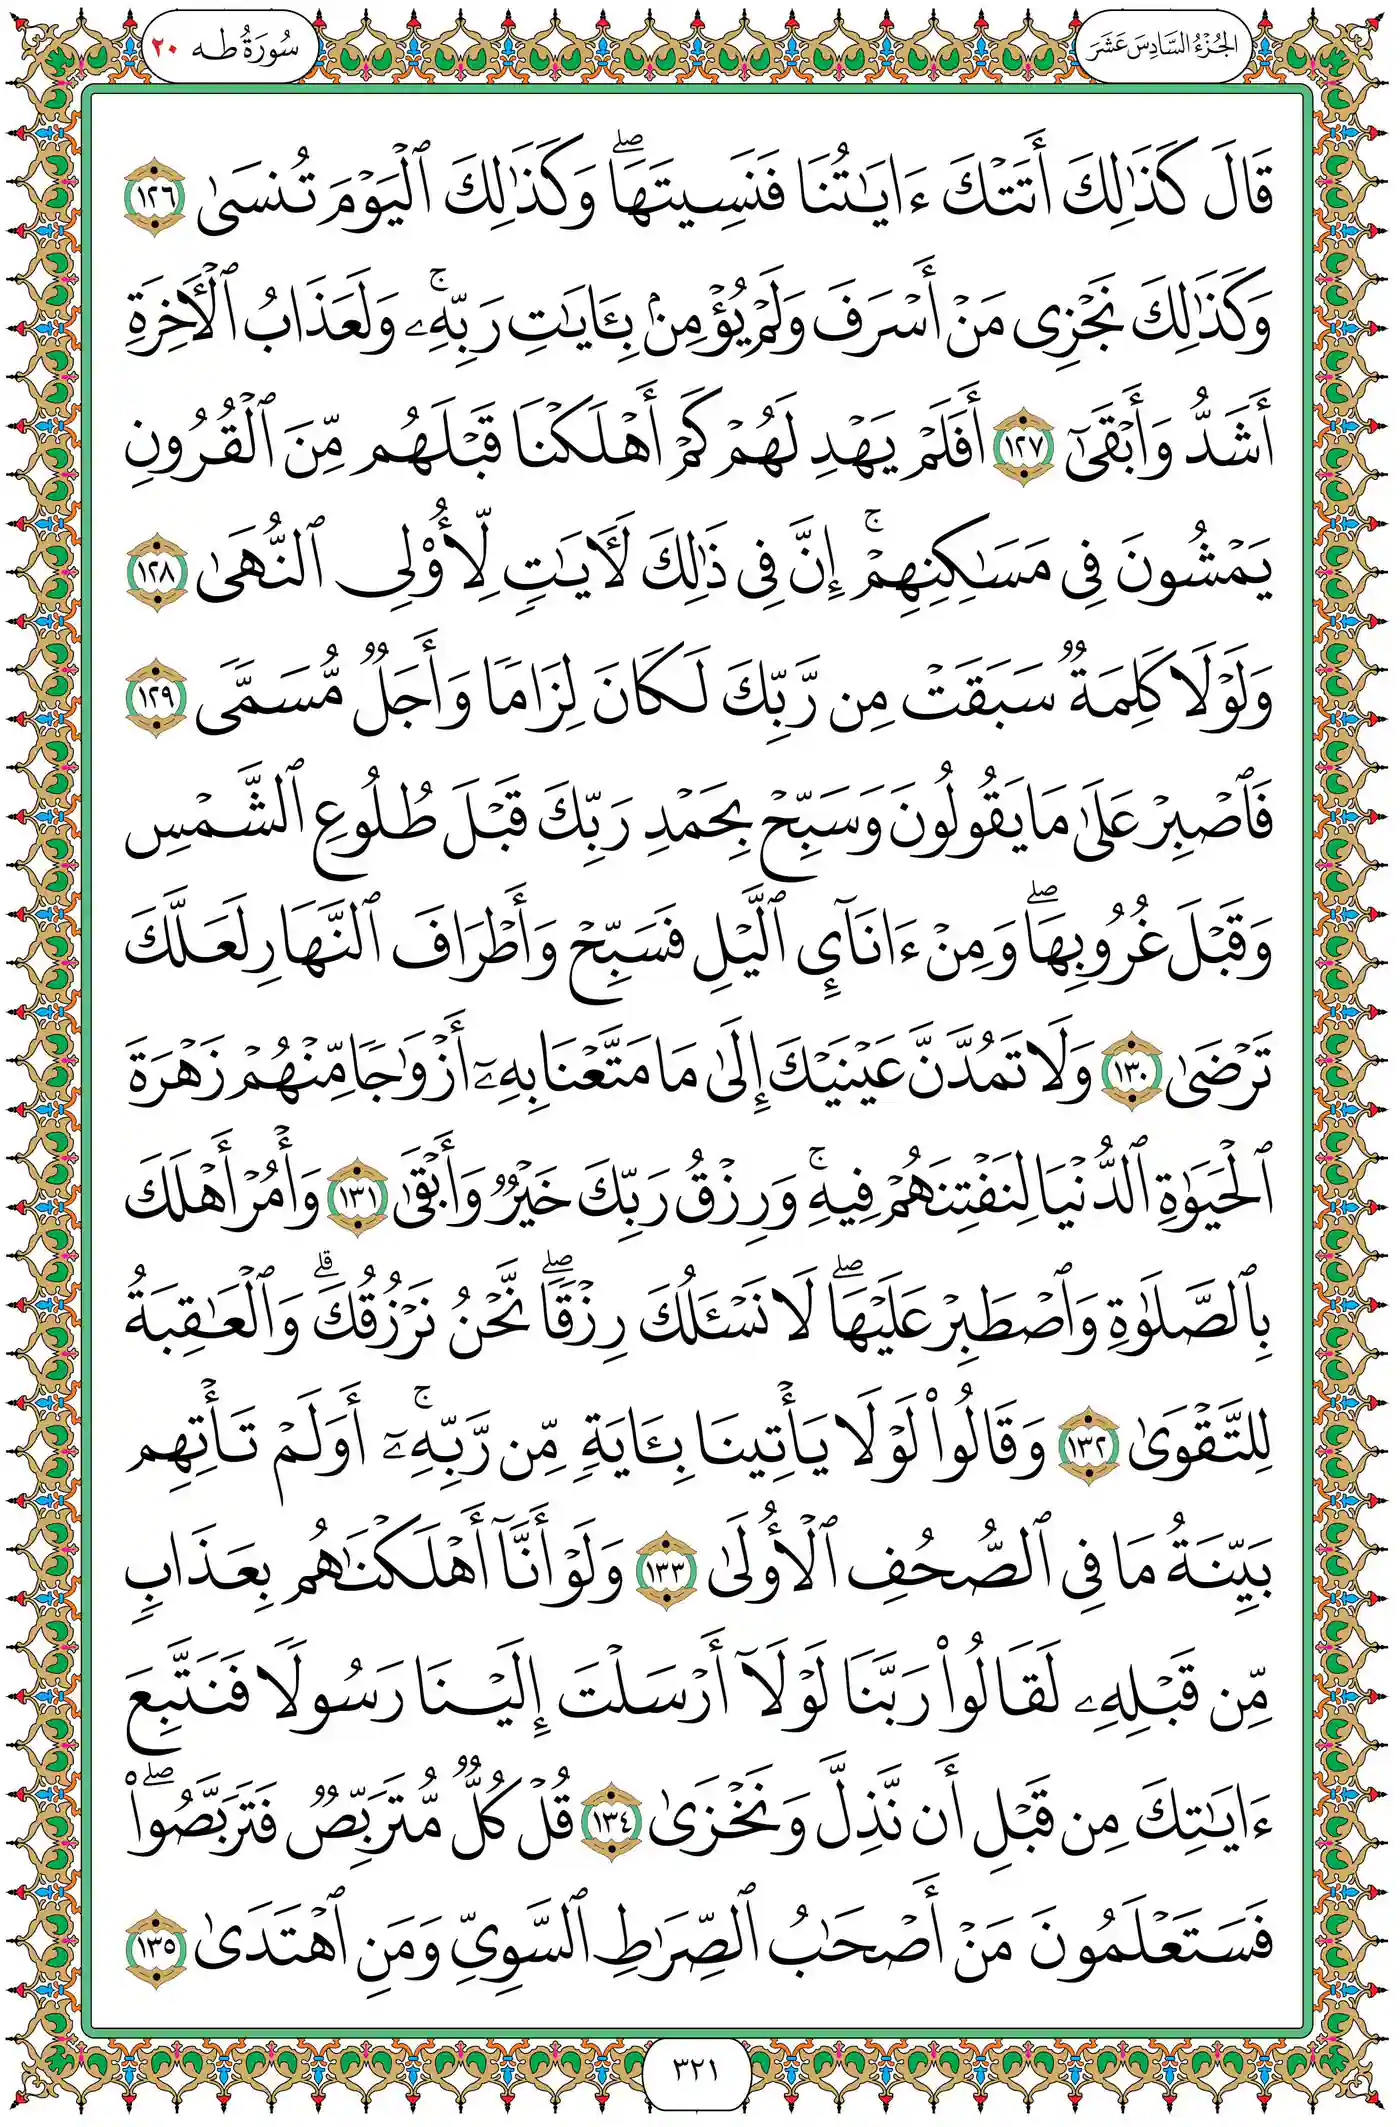 الجُزْءُ السَّادِسَ عَشَرَ
سُورَةُ طه ٢٠
قَالَ كَذَٰلِكَ أَتَتْكَ ءَايَٰتُنَا فَنَسِيتَهَاۖ وَكَذَٰلِكَ ٱلْيَوْمَ تُنسَىٰ ١٢٦
وَكَذَٰلِكَ نَجْزِى مَنْ أَسْرَفَ وَلَمْ يُؤْمِنۢ بِـَٔايَٰتِ رَبِّهِۦۚ وَلَعَذَابُ ٱلْـَٔاخِرَةِ
أَشَدُّ وَأَبْقَىٰٓ ١٢٧ أَفَلَمْ يَهْدِ لَهُمْ كَمْ أَهْلَكْنَا قَبْلَهُم مِّنَ ٱلْقُرُونِ
يَمْشُونَ فِى مَسَٰكِنِهِمْۚ إِنَّ فِى ذَٰلِكَ لَـَٔايَٰتٍ لِّأُو۟لِى ٱلنُّهَىٰ ١٢٨
وَلَوْلَا كَلِمَةٌ سَبَقَتْ مِن رَّبِّكَ لَكَانَ لِزَامًا وَأَجَلٌ مُّسَمًّى ١٢٩
فَٱصْبِرْ عَلَىٰ مَا يَقُولُونَ وَسَبِّحْ بِحَمْدِ رَبِّكَ قَبْلَ طُلُوعِ ٱلشَّمْسِ
وَقَبْلَ غُرُوبِهَاۖ وَمِنْ ءَانَآئِ ٱلَّيْلِ فَسَبِّحْ وَأَطْرَافَ ٱلنَّهَارِ لَعَلَّكَ
تَرْضَىٰ ١٣٠ وَلَا تَمُدَّنَّ عَيْنَيْكَ إِلَىٰ مَا مَتَّعْنَا بِهِۦٓ أَزْوَٰجًا مِّنْهُمْ زَهْرَةَ
ٱلْحَيَوٰةِ ٱلدُّنْيَا لِنَفْتِنَهُمْ فِيهِۚ وَرِزْقُ رَبِّكَ خَيْرٌ وَأَبْقَىٰ ١٣١ وَأْمُرْ أَهْلَكَ
بِٱلصَّلَوٰةِ وَٱصْطَبِرْ عَلَيْهَاۖ لَا نَسْـَٔلُكَ رِزْقًاۖ نَّحْنُ نَرْزُقُكَۗ وَٱلْعَٰقِبَةُ
لِلتَّقْوَىٰ ١٣٢ وَقَالُوا۟ لَوْلَا يَأْتِينَا بِـَٔايَةٍ مِّن رَّبِّهِۦٓۚ أَوَلَمْ تَأْتِهِم
بَيِّنَةُ مَا فِى ٱلصُّحُفِ ٱلْأُولَىٰ ١٣٣ وَلَوْ أَنَّآ أَهْلَكْنَٰهُم بِعَذَابٍ
مِّن قَبْلِهِۦ لَقَالُوا۟ رَبَّنَا لَوْلَآ أَرْسَلْتَ إِلَيْنَا رَسُولًا فَنَتَّبِعَ
ءَايَٰتِكَ مِن قَبْلِ أَن نَّذِلَّ وَنَخْزَىٰ ١٣٤ قُلْ كُلٌّ مُّتَرَبِّصٌ فَتَرَبَّصُوا۟ۖ
فَسَتَعْلَمُونَ مَنْ أَصْحَٰبُ ٱلصِّرَٰطِ ٱلسَّوِىِّ وَمَنِ ٱهْتَدَىٰ ١٣٥
٣٢١